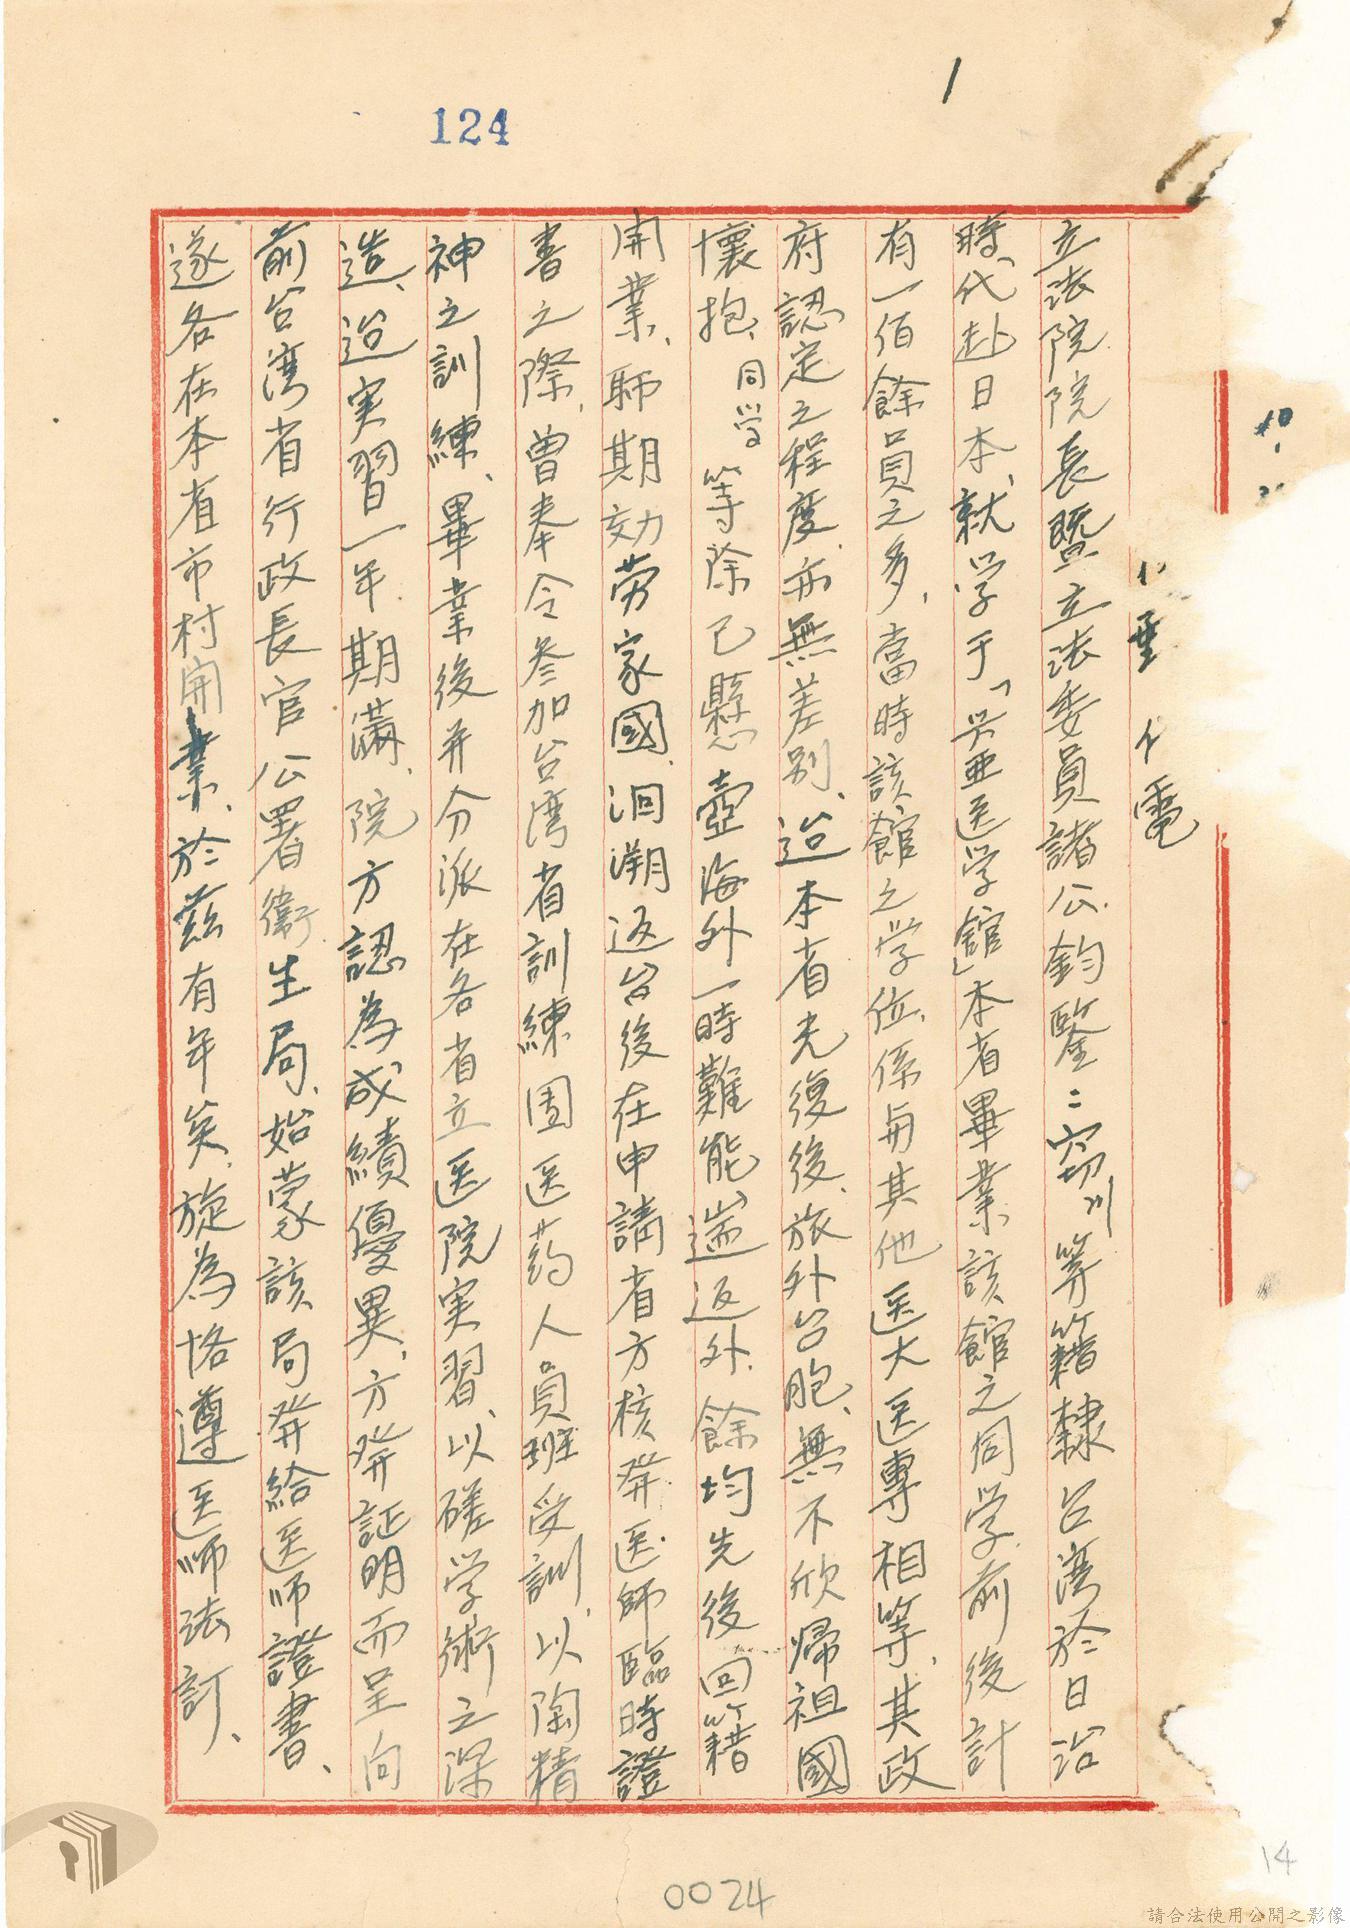 1
124
電
立法院院長暨立法委員諸公鈞鑒:竊川等籍隸台湾於日治
時代赴日本、就学于「兴亜医学館」本省畢業該館之同学前後計
有一佰餘員之多,當時該館之学位、係与其他医大医専相等、其政
府認定之程度亦無差別、迨本省光復後、旅外台胞、無不欣帰祖國
懷抱、同学等除已懸壺海外一時難能遄返外、餘均先後回籍
開業、聊期効劳家國、洄溯返台後在申請省方核発医師臨時證
書之際、曾奉令参加台湾省訓練团医药人員班受訓、以陶精
神之訓練、畢業後并分派在各省立医院実習、以磋学術之深
造、迨実習一年期满、院方認為成績優異、方発証明而呈向
前台湾省行政長官公署衛生局、始蒙該局発給医师證書、
遂各在本省市村開業、於兹有年矣、旋為恪遵医师法訂、
0024
14
請合法使用公開之影像